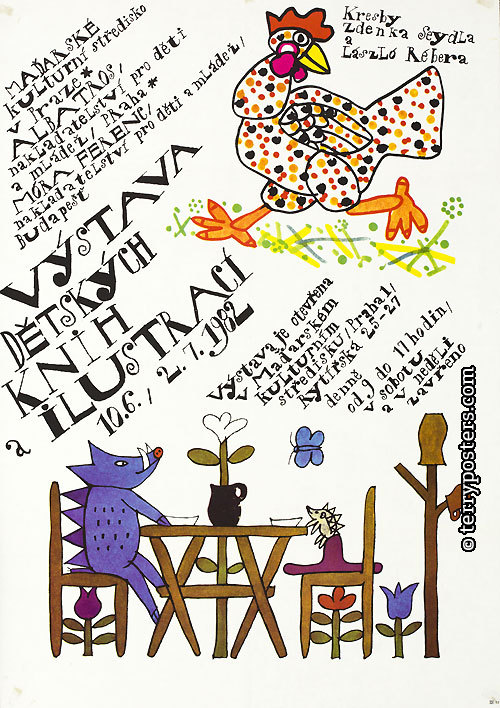 Maďarské
kulturní středisko
v Praze*
Albatros/
nakladatelství pro děti
a mládež/Praha*
Móra Ferenc/
nakladatelství pro děti a mládež/
Budapešť
Výstava
dětských
knih
a ilustrací
10.6./ 2.7.1982
Kresby
Zdenka Seydla
a
László Rébera
Výstava je otevřena
v Maďarském
kulturním
středisku/Praha 1/
Rytířská 25-27
denně
od 9 do 17 hodin/
v sobotu
a v neděli
zavřeno
© terryposters.com